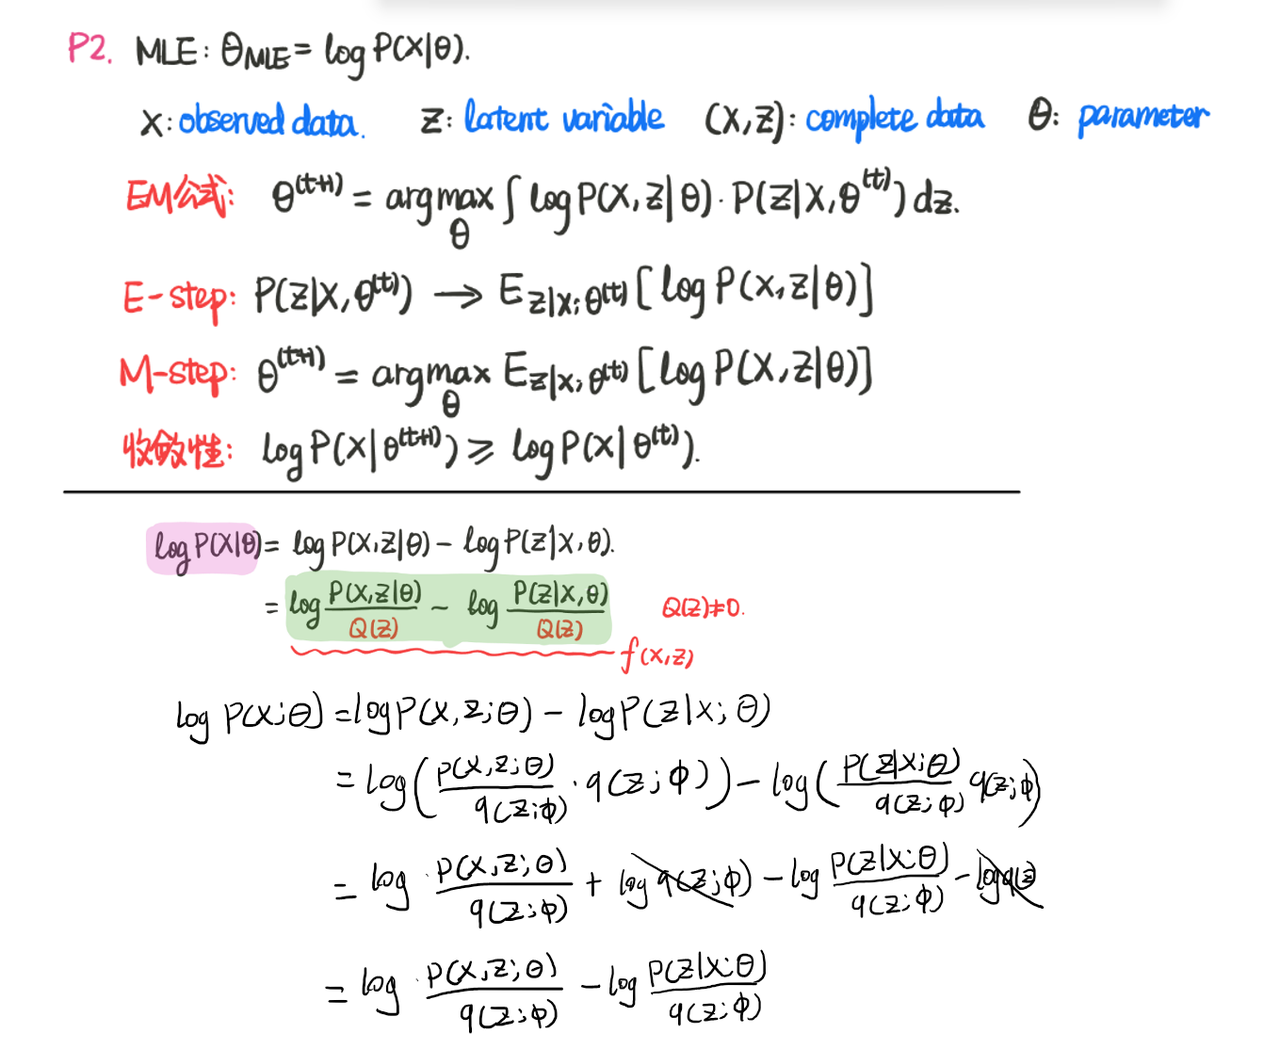 P2. MLE: θ_MLE = log P(X|θ).
X: observed data. Z: latent variable (X,Z): complete data θ: parameter
EM公式: θ^(t+1) = argmax_θ ∫ log P(X,Z|θ)·P(Z|X,θ^(t)) dz.
E-step: P(Z|X,θ^(t)) → E_{Z|X;θ^(t)} [log P(X,Z|θ)]
M-step: θ^(t+1) = argmax_θ E_{Z|X;θ^(t)} [log P(X,Z|θ)]
收敛性: log P(X|θ^(t+1)) ⩾ log P(X|θ^(t)).
log P(X|θ) = log P(X,Z|θ) − log P(Z|X,θ).
= log P(X,Z|θ)/Q(Z) − log P(Z|X,θ)/Q(Z) Q(Z)≠0.
f(X,Z)
log P(X;θ) = log P(X,Z;θ) − log P(Z|X;θ)
= log( P(X,Z;θ)/q(Z;φ) · q(Z;φ) ) − log( P(Z|X;θ)/q(Z;φ) q(Z;φ) )
= log P(X,Z;θ)/q(Z;φ) + log q(Z;φ) − log P(Z|X;θ)/q(Z;φ) − log q(Z
= log P(X,Z;θ)/q(Z;φ) − log P(Z|X;θ)/q(Z;φ)